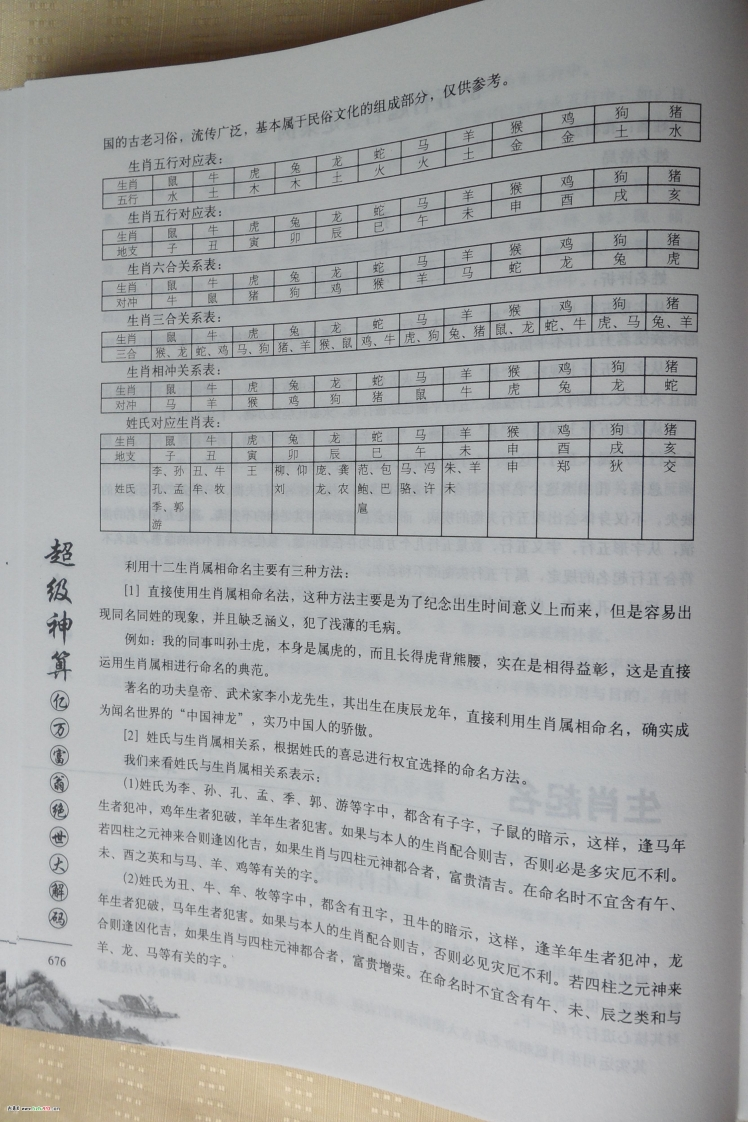 国的古老习俗，流传广泛，基本属于民俗文化的组成部分，仅供参考。
生肖五行对应表：
生肖 鼠 牛 虎 兔 龙 蛇 马 羊 猴 鸡 狗 猪
五行 水 土 木 木 土 火 火 土 金 金 土 水
生肖五行对应表：
生肖 鼠 牛 虎 兔 龙 蛇 马 羊 猴 鸡 狗 猪
地支 子 丑 寅 卯 辰 巳 午 未 申 酉 戌 亥
生肖六合关系表：
生肖 鼠 牛 虎 兔 龙 蛇 马 羊 猴 鸡 狗 猪
对冲 牛 鼠 猪 狗 鸡 猴 羊 马 蛇 龙 兔 虎
生肖三合关系表：
生肖 鼠 牛 虎 兔 龙 蛇 马 羊 猴 鸡 狗 猪
三合 猴、龙 蛇、鸡 马、狗 猪、羊 猴、鼠 鸡、牛 虎、狗 兔、猪 鼠、龙 蛇、牛 虎、马 兔、羊
生肖相冲关系表：
生肖 鼠 牛 虎 兔 龙 蛇 马 羊 猴 鸡 狗 猪
对冲 马 羊 猴 鸡 狗 猪 鼠 牛 虎 兔 龙 蛇
姓氏对应生肖表：
生肖 鼠 牛 虎 兔 龙 蛇 马 羊 猴 鸡 狗 猪
地支 子 丑 寅 卯 辰 巳 午 未 申 酉 戌 亥
李、孙 丑、牛 王 柳、仰 庞、龚 范、包 马、冯 朱、羊 申 郑 狄 交
姓氏 孔、孟 牟、牧 刘 龙、农 鲍、巴 骆、许 未
季、郭 扈
游
利用十二生肖属相命名主要有三种方法：
[1] 直接使用生肖属相命名法，这种方法主要是为了纪念出生时间意义上而来，但是容易出
现同名同姓的现象，并且缺乏涵义，犯了浅薄的毛病。
例如：我的同事叫孙士虎，本身是属虎的，而且长得虎背熊腰，实在是相得益彰，这是直接
运用生肖属相进行命名的典范。
著名的功夫皇帝、武术家李小龙先生，其出生在庚辰龙年，直接利用生肖属相命名，确实成
为闻名世界的“中国神龙”，实乃中国人的骄傲。
[2] 姓氏与生肖属相关系，根据姓氏的喜忌进行权宜选择的命名方法。
我们来看姓氏与生肖属相关系表示：
(1)姓氏为李、孙、孔、孟、季、郭、游等字中，都含有子字，子鼠的暗示，这样，逢马年
生者犯冲，鸡年生者犯破，羊年生者犯害。如果与本人的生肖配合则吉，否则必是多灾厄不利。
若四柱之元神来合则逢凶化吉，如果生肖与四柱元神都合者，富贵清吉。在命名时不宜含有午、
未、酉之英和与马、羊、鸡等有关的字。
(2)姓氏为丑、牛、牟、牧等字中，都含有丑字，丑牛的暗示，这样，逢羊年生者犯冲，龙
年生者犯破，马年生者犯害。如果与本人的生肖配合则吉，否则必见灾厄不利。若四柱之元神来
合则逢凶化吉，如果生肖与四柱元神都合者，富贵增荣。在命名时不宜含有午、未、辰之类和与
羊、龙、马等有关的字。
超级神算
亿万富翁绝世大解码
676